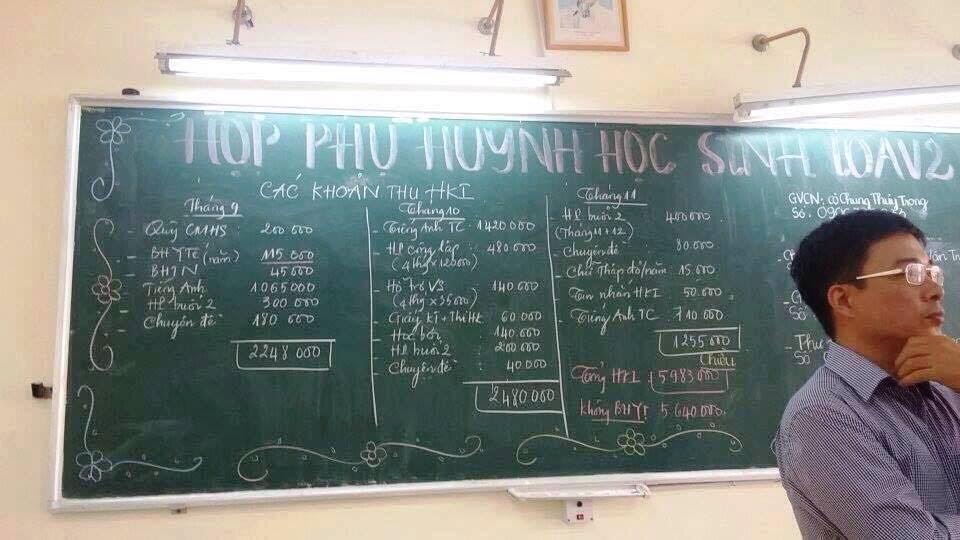 HỌP PHỤ HUYNH HỌC SINH LOAV2
CÁC KHOẢN THU HKI
Tháng 9
- Quỹ CMHS : 200 000
- BHYTE (năm) 115 000
- BHTN : 45 000
- Tiếng Anh : 1 065 000
- HP buổi 2 : 300 000
- Chuyên đề : 180 000
2248 000
Tháng 10
- Tiếng Anh TC : 1420 000
- HP công lập : 480 000
(4 thg x 120000)
- Hỗ trợ VS : 140 000
(4 thg x 35000)
- Giấy KT + Thi HK 60 000
- Học bơi : 140.000
- HP buổi 2 : 200 000
- Chuyên đề : 40.000
2480 000
Tháng 11
- HP buổi 2 : 400 000
(Tháng 11 + 12)
- Chuyên đề : 80.000
- Chữ Thập đỏ/năm 15.000
- Tin nhắn HKI : 50.000
- Tiếng Anh TC : 710 000
1255 000
Tổng HKI : 5983 000
không BHYT : 5.640 000
GVCN: cô Chung Thúy Trọng
Số
Thư
Số